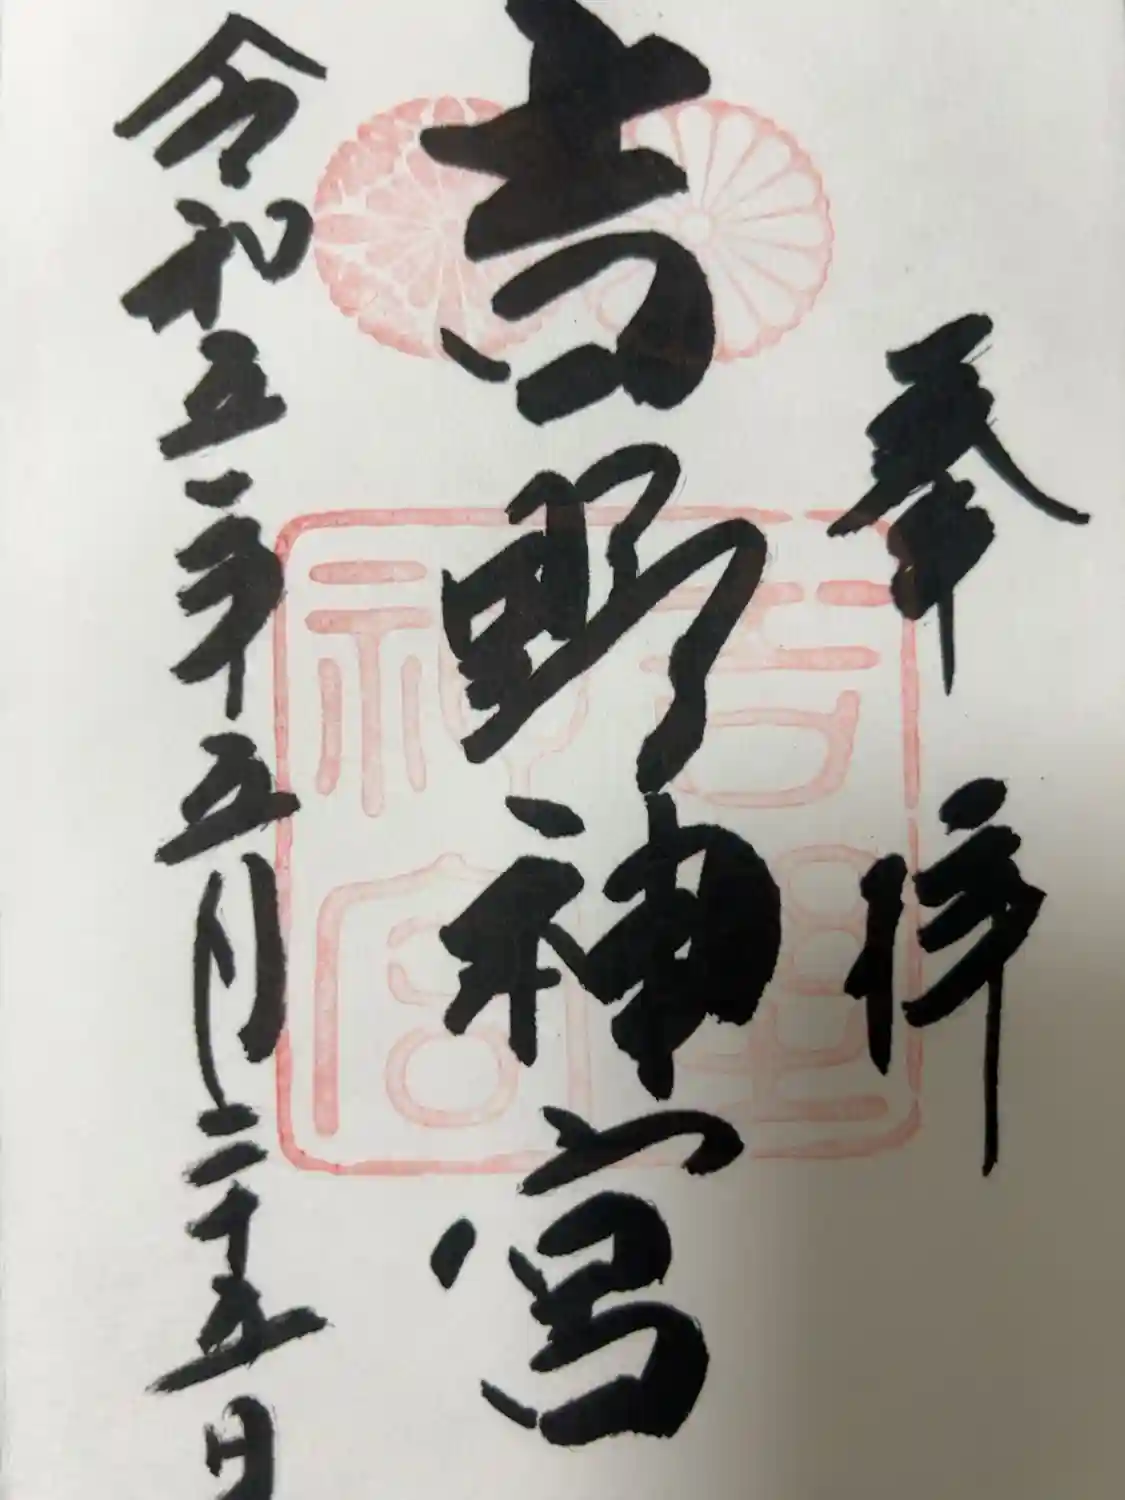 奉拝
吉野神宮
令和五年五月二十五日
吉野神宮